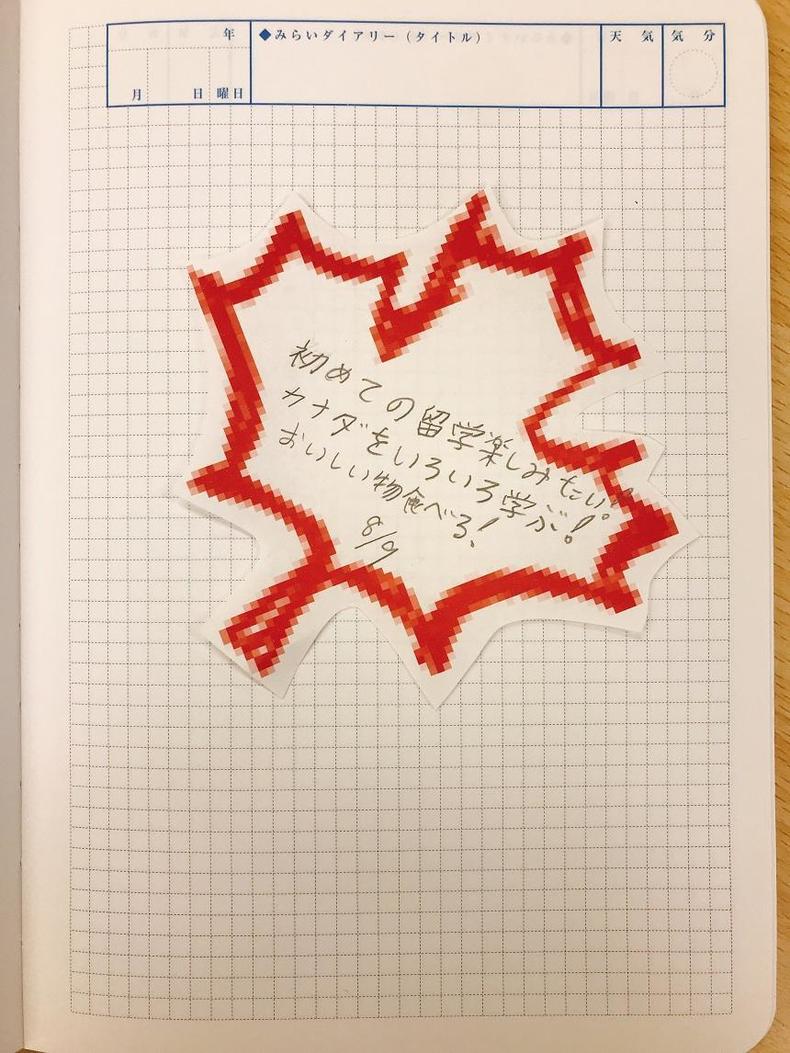 年
◆みらいダイアリー（タイトル）
天 気
気 分
月 日 曜日
初めての留学楽しみたい!!
カナダをいろいろ学ぶ!
おいしい物食べる!
8/9